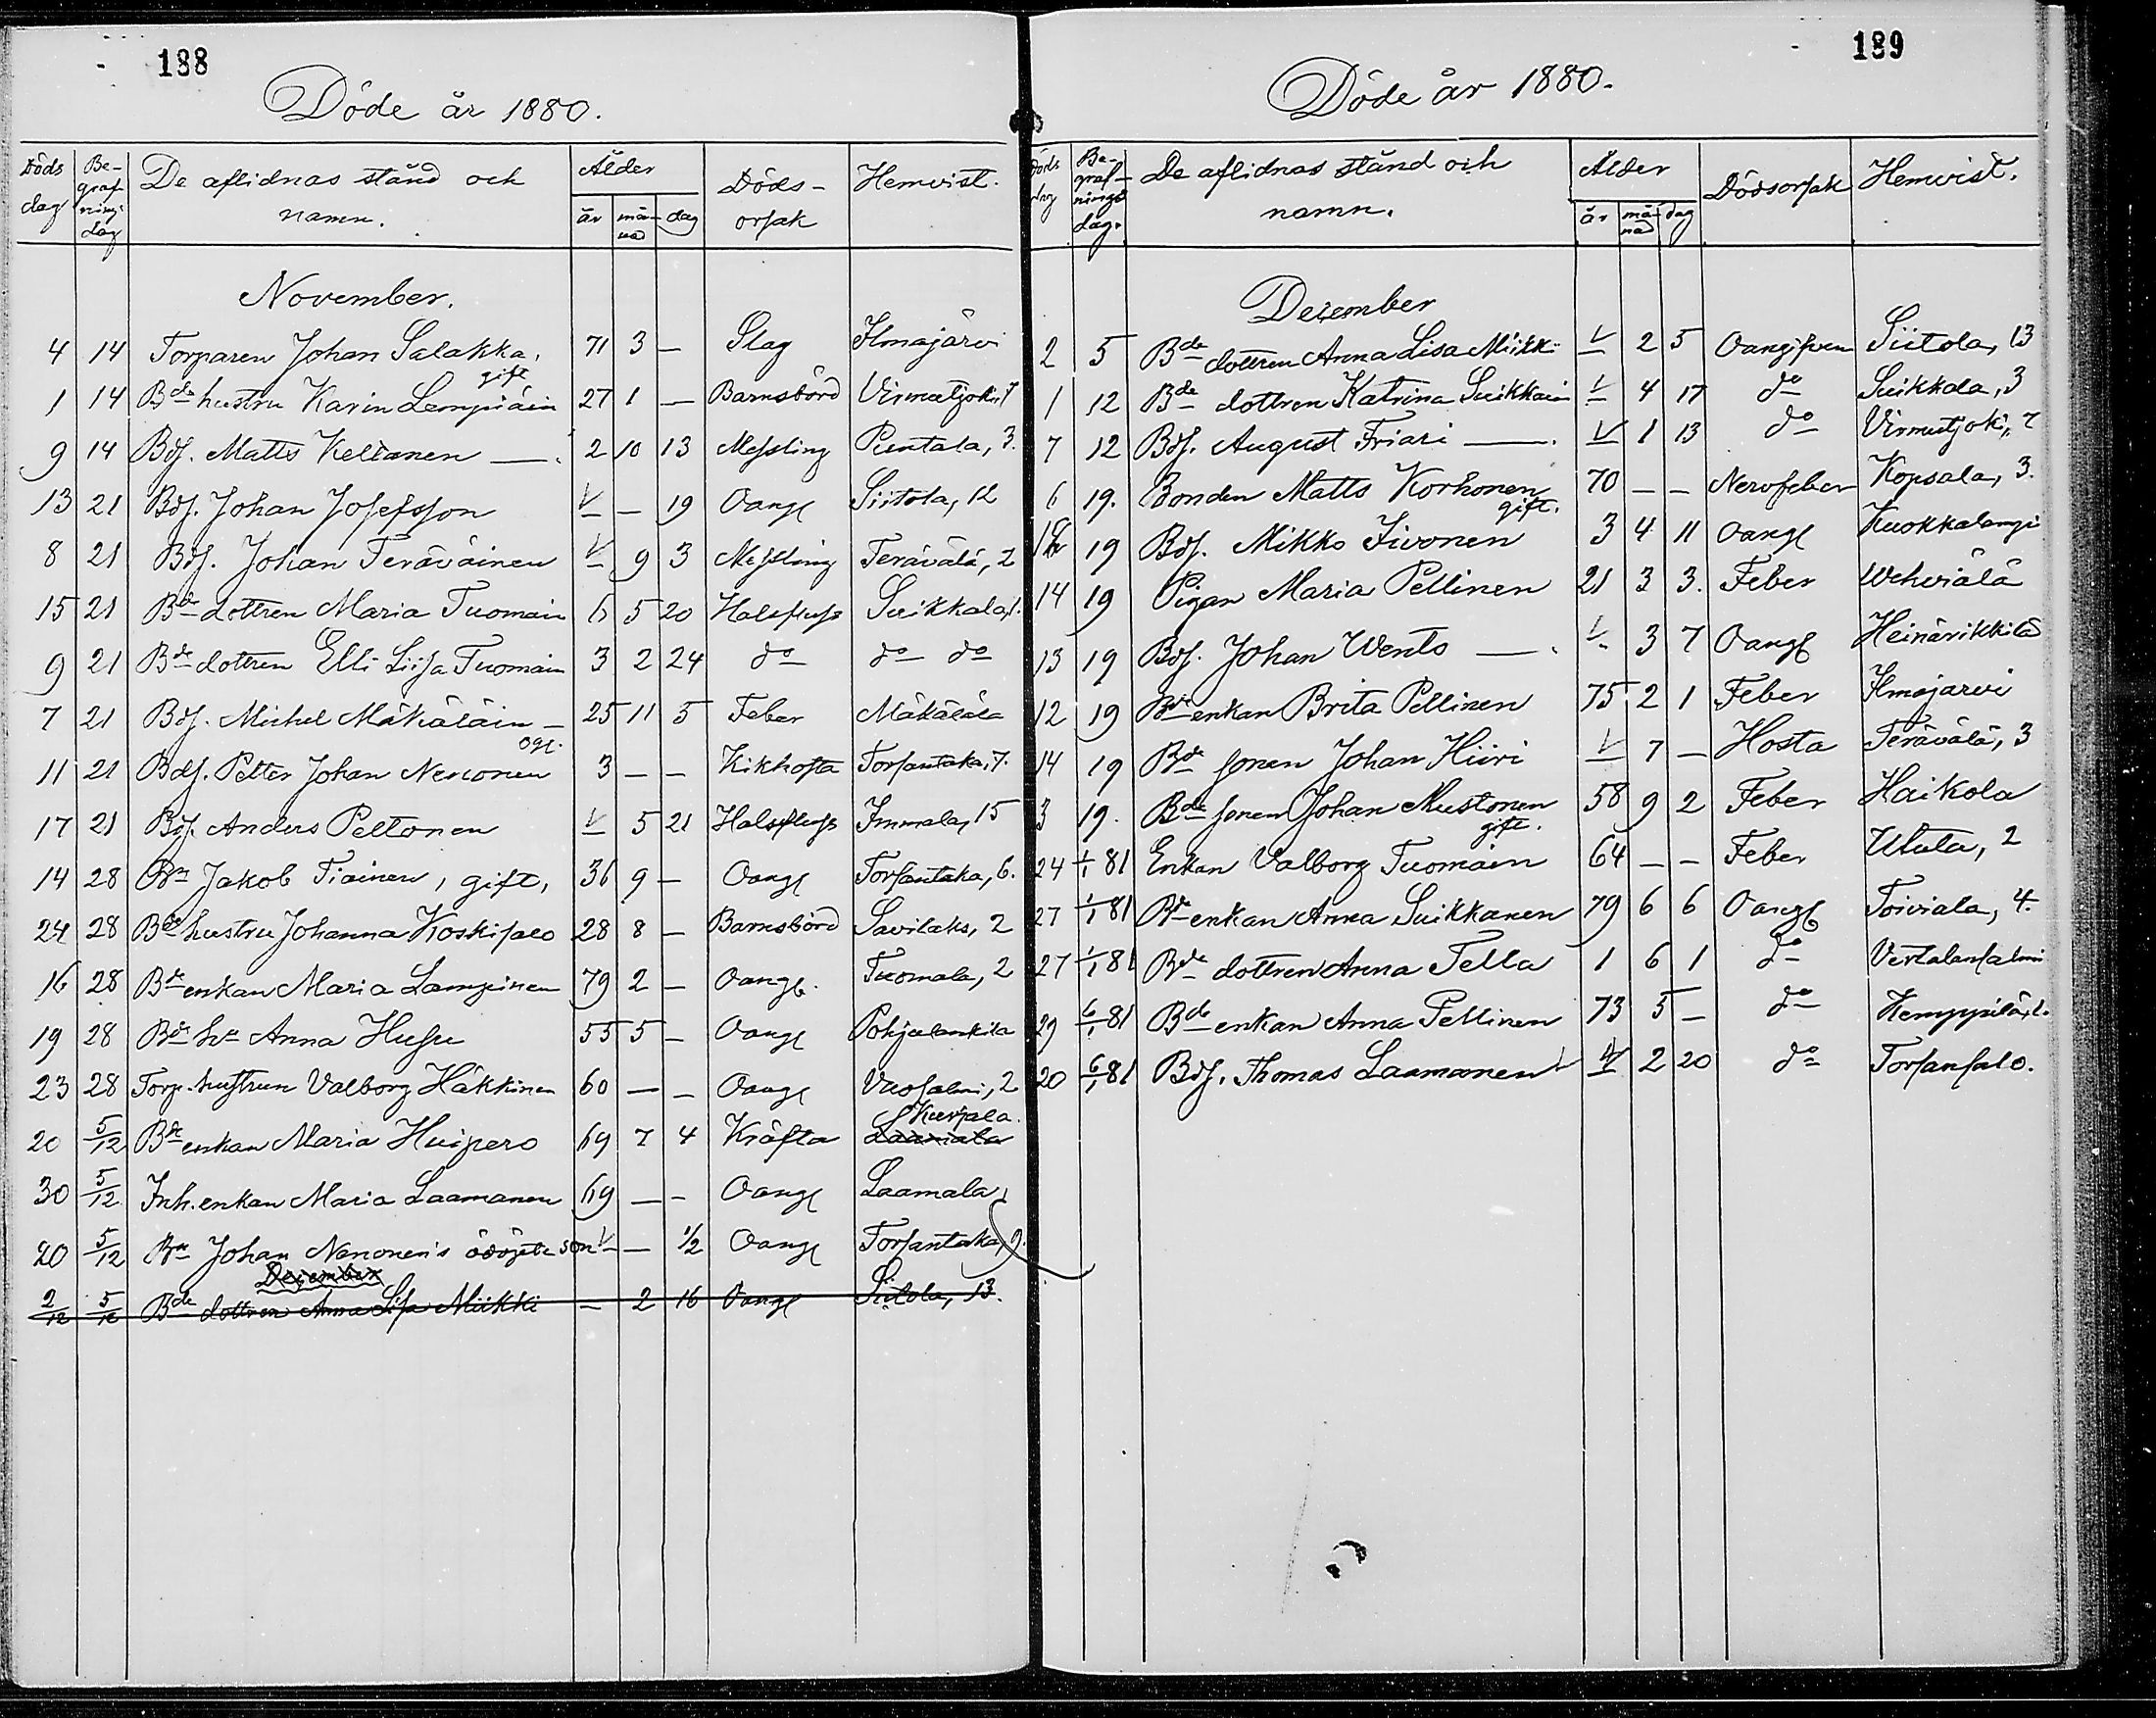 188
Döde år 1880.
Döds dag | Begrafnings dag | De aflidnas stånd och namn. | Ålder år månad dag | Dödsorsak | Hemvist.
November.
4 14 Torparen Johan Salakka, gift 71 3 — Slag Ilmajärvi
1 14 Bde hustru Karin Lempiäin 27 1 — Barnsbörd Virmutjoki, 7
9 14 Bds. Matts Keltanen — 2 10 13 Messling Puntala, 3.
13 21 Bds. Johan Josefsson V — 19 Oangf Siitola, 12
8 21 Bds. Johan Teräväinen V 9 3 Messling Terävälä, 2
15 21 Bde dottren Maria Tuomain 6 5 20 Halsfluss Suikkala, 1.
9 21 Bde dottren Elli Liisa Tuomain 3 2 24 do do do
7 21 Bds. Michel Mäkäläin — ogt. 25 11 5 Feber Mäkälälä
11 21 Bds. Petter Johan Nenonen 3 — — Kikhosta Torsantaka, 7.
17 21 Bds. Anders Peltonen V 5 21 Halsfluss Immala, 15
14 28 Bn Jakob Tiainen, gift, 36 9 — Oangf Torsantaka, 6.
24 28 Bde hustru Johanna Koskisalo 28 8 — Barnsbörd Savilaks, 2
16 28 Bde enkan Maria Lampinen 79 2 — Oangf. Tuomala, 2
19 28 Bde hu Anna Husu 55 5 — Oangf Pohjalankila
23 28 Torp. hustrun Valborg Häkkinen 60 — — Oangf Vasosalmi, 2
20 5/12 Bde enkan Maria Huipero 69 7 4 Kräfta Laamala Kurjala.
30 5/12 Inh. enkan Maria Laamanen 69 — — Oangf Laamala
20 5/12 Bn Johan Nenonen's odöpte son V — 1/2 Oangf Torsantaka, 9.
December
2/12 5/12 Bde dottren Anna Lisa Miikki — 2 16 Oangf Siitola, 13.
189
Döde år 1880.
Döds dag | Begrafnings dag. | De aflidnas stånd och namn. | Ålder år månad dag | Dödsorsak | Hemvist.
December
2 5 Bde dottren Anna Lisa Miikki V 2 5 Oangifven Siitola, 13
1 12 Bde dottren Katrina Suikkain V 4 17 do Suikkala, 3
7 12 Bds. August Friari — V 1 13 do Virmutjoki, 7
6 19. Bonden Matts Korhonen gift. 70 — — Nervfeber Kopsala, 3.
19 Bds. Mikko Iivonen 3 4 11 Oangf Kuokkalampi
14 19 Pigan Maria Pellinen 21 3 3. Feber Wehviälä
13 19 Bds. Johan Wento — V 3 7 Oangf Heinärikkilä
12 19 Bde enkan Brita Pellinen 75 2 1 Feber Ilmajärvi
14 19 Bde sonen Johan Hiiri V 7 — Hosta Terävälä, 3
3 19. Bde sonen Johan Mustonen gift. 58 9 2 Feber Haikola
24 1/1 81 Enkan Valborg Tuomain 64 — — Feber Utula, 2
27 1/1 81 Bde enkan Anna Suikkanen 79 6 6 Oangf Toiviala, 4.
27 1/1 81 Bde dottren Anna Tella 1 6 1 do Vertalansalmi
29 6/1 81 Bde enkan Anna Pellinen 73 5 — do Kemppilä, 1.
20 6/1 81 Bds. Thomas Laamanen V 2 20 do Torsansalo.